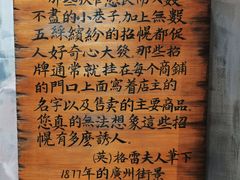 不盡的小巷子,加上無數
五綵繽紛的招幌都促
人好奇心大發,那些招
牌通常就挂在每个商鋪
的門口,上面寫着店主的
名字以及售卖的主要商品,
您真的無法想象這些招
幌有多麽誘人。
(英)格雷夫人筆下
1877年的廣州街景